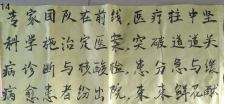 14
专家团队在前线，医疗柱中坚
科学施治定医案，突破道道关
病诊断与核酸检，患分急与缓
病愈患者纷出院，束束鲜花献